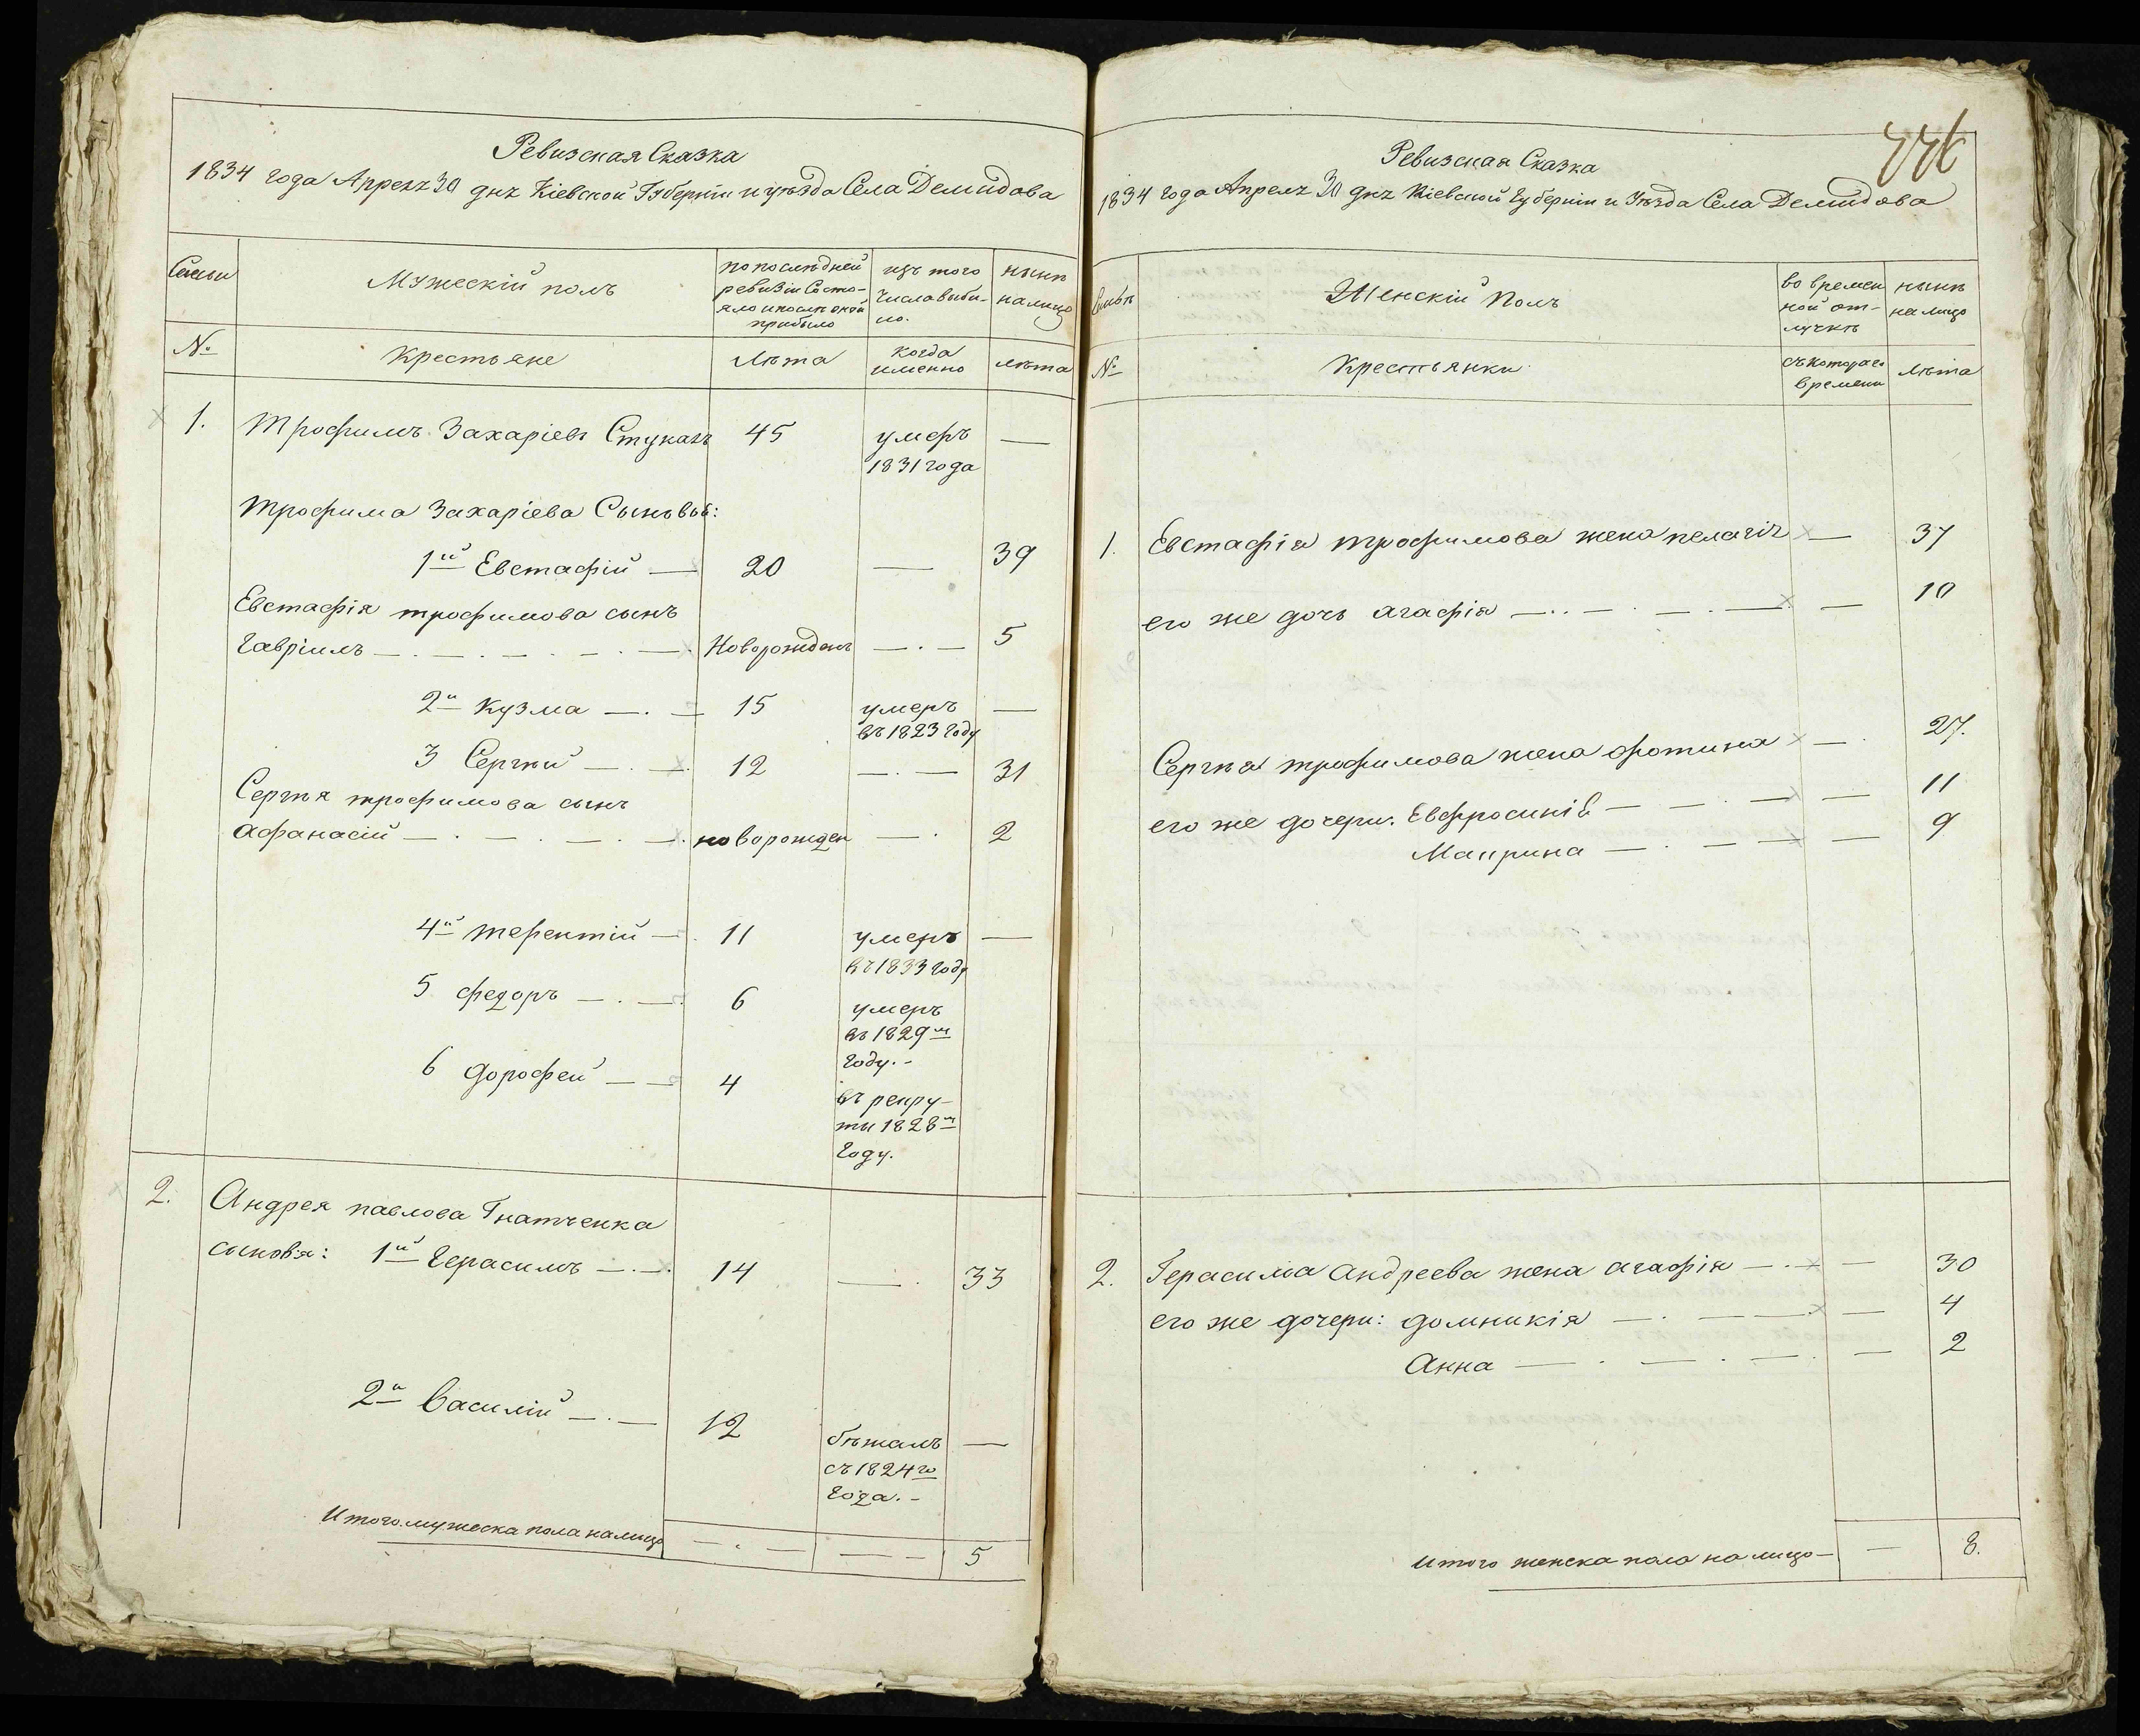 Ревизская Сказка
1834 года Апреля 30 дня Кіевской Губерніи и уѣзда Села Демидова
Семьи
Мужескій полъ
по послѣдней
ревизіи Состо-
яло и послѣ оной
прибыло
изъ того
числа выбы-
ло.
нынѣ
налицо
№
Крестьяне
Лѣта
когда
именно
лѣта
1. Трофимъ Захаріевъ Стукачъ 45 умеръ —
1831 года
Трофима Захаріева Сыновья:
1й Евстафій — 20 — 39
Евстафія трофимова сынъ
Гавріилъ — Новорожденъ — 5
2й Кузма — 15 умеръ —
въ 1823 Году
3 Сергѣй — 12 — 31
Сергѣя трофимова сынъ
Афанасій — новорожден — 2
4й терентій — 11 умеръ —
въ 1833 Году
5 федоръ — 6 умеръ
въ 1829м
Году.-
6 дорофей — 4
въ рекру-
ты 1828м
Году.
2. Андрея павлова Гнатченка
сыновя: 1й Герасимъ — 14 — 33
2й Василій — 12 бѣжалъ —
съ 1824го
Года.-
Итого мужеска пола налицо — — 5
446
Ревизская Сказка
1834 года Апреля 30 дня Кіевской Губерніи и Уѣзда Села Демидова
Семьѣ
Женскій Полъ
во времен
ной от-
лучкѣ
нынѣ
на лицо
№
Крестьянки
съ котораго
времени
Лѣта
1. Евстафія трофимова жена пелагія — 37
его же дочь агафія — 10
Сергѣя трофимова жена фотинія — 27.
его же дочери: Евфросинія — 11
Макрина — 9
2. Герасима андреева жена агафія — 30
его же дочери: домникія — 4
Анна — 2
Итого женска пола на лицо — — 8.